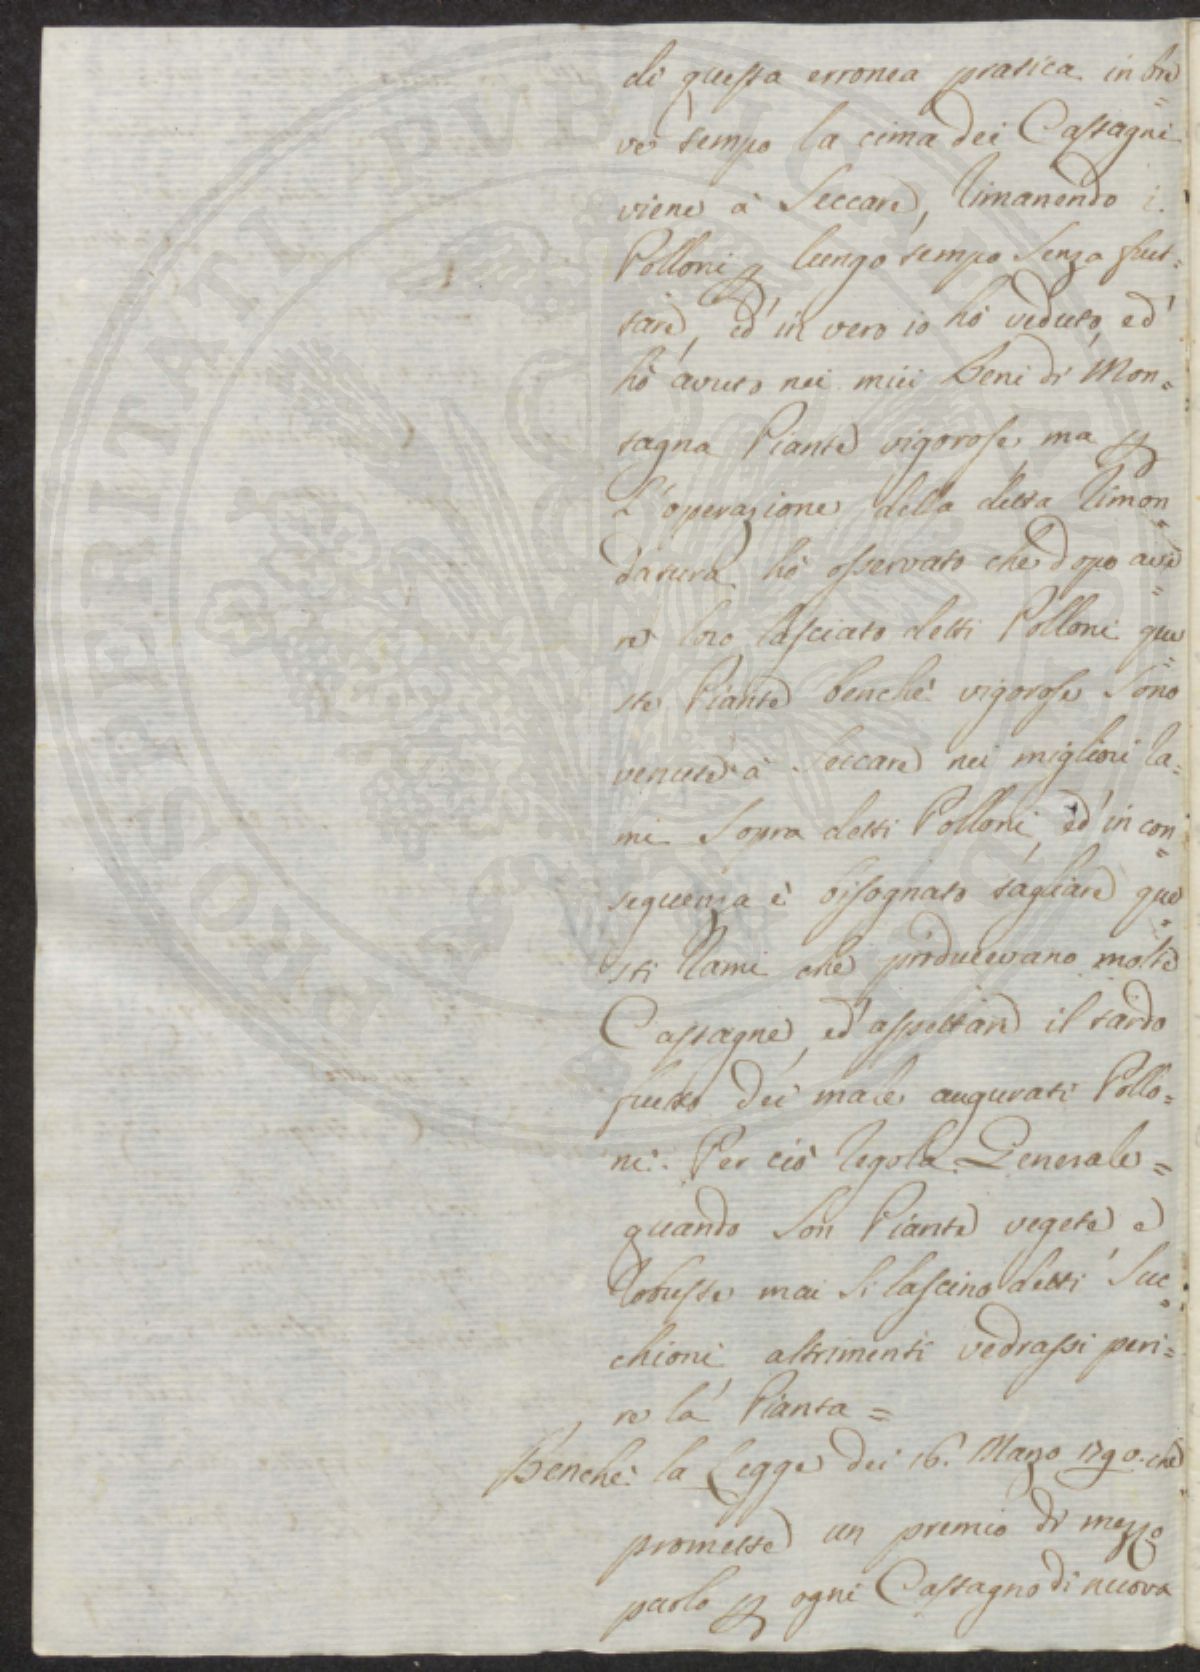 di questa erronea pratica in bre=
ve tempo la cima dei Castagni
viene à Seccare, Rimanendo i
Polloni p lungo tempo Senza frut=
tare, ed' in vero io hò veduto, ed'
hò avuto nei miei Beni di Mon=
tagna Piante vigorose, ma p
l'operazione della detta Rimon=
datura hò osservato che dopo ave=
re loro lasciato detti Polloni que=
ste Piante benchè vigorose Sono
venute à Seccare nei migliori ra=
mi Sopra detti Polloni, ed' in con=
seguenza è bisognato tagliare que=
sti Rami che producevano molte
Castagne, ed' aspettare il tardo
frutto dei male augurati Pollo=
ni. Per ciò Regola Generale =
quando Son Piante vegete e
Robuste mai Si lascino detti Suc=
chioni, altrimenti vedrassi peri=
re la Pianta =
Benchè la Legge dei 16. Marzo 1790. che
promette un premio di mezzo
paolo p ogni Castagno di nuova
PROSPERITATI PUBLICAE